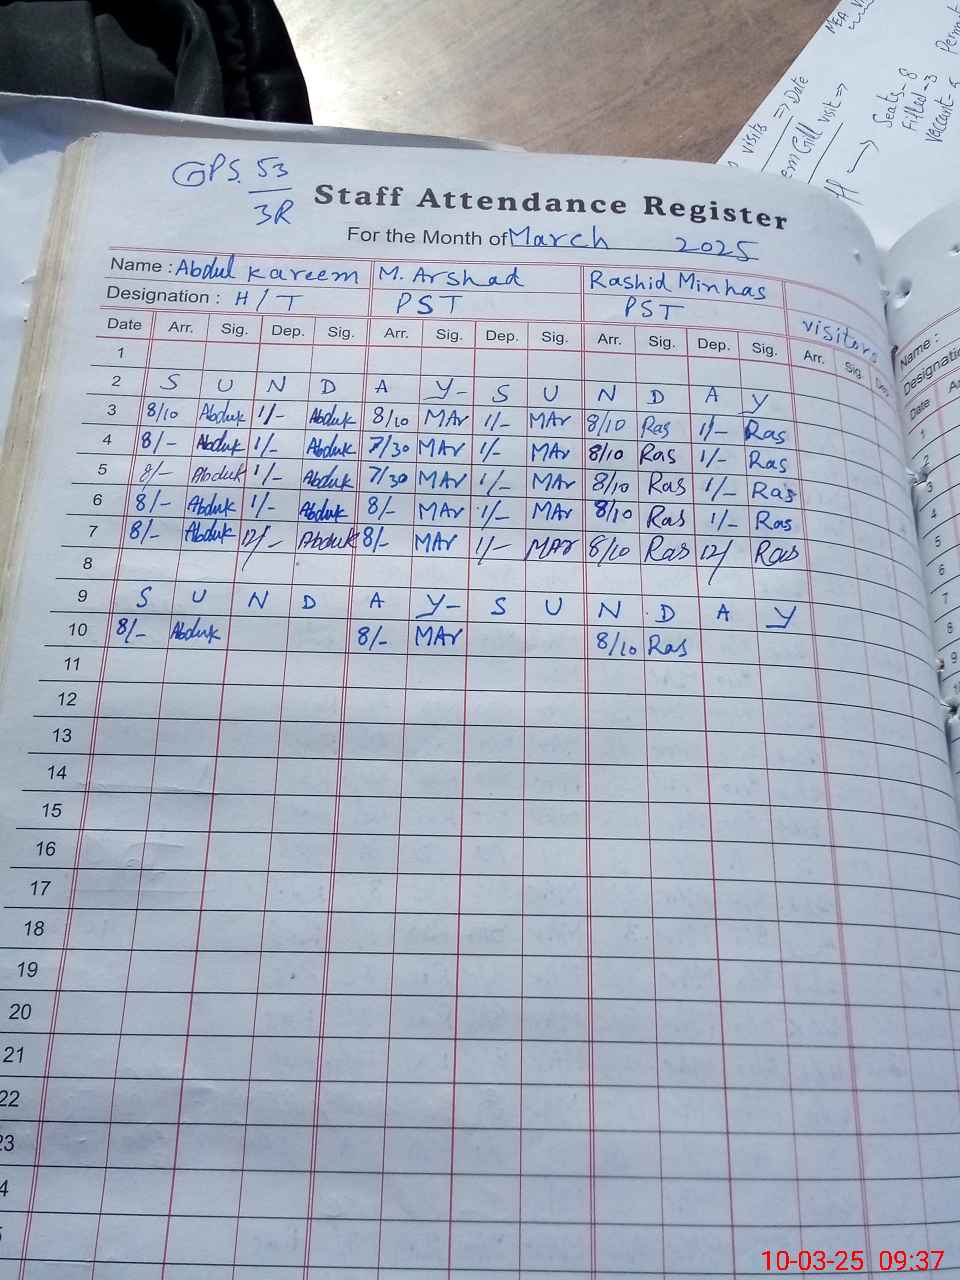 MEA Vi
visits => Date
em Gill visit =>
Seats - 8
Filled - 3
vaccant - 5
GPS. 53/3R
Staff Attendance Register
For the Month of March 2025
Name : Abdul Kareem M. Arshad Rashid Minhas
Designation : H/T PST PST visitors
Date Arr. Sig. Dep. Sig. Arr. Sig. Dep. Sig. Arr. Sig. Dep. Sig. Arr. Sig. Dep
1
2 S U N D A Y- S U N D A Y
3 8/10 Abduk 1/- Abduk 8/10 MAr 1/- MAr 8/10 Ras 1/- Ras
4 8/- Abduk 1/- Abduk 7/30 MAr 1/- MAr 8/10 Ras 1/- Ras
5 8/- Abduk 1/- Abduk 7/30 MAr 1/- MAr 8/10 Ras 1/- Ras
6 8/- Abduk 1/- Abduk 8/- MAr 1/- MAr 8/10 Ras 1/- Ras
7 8/- Abduk 12/- Abduk 8/- MAr 1/- MAr 8/10 Ras 12/ Ras
8
9 S U N D A Y- S U N D A Y
10 8/- Abduk 8/- MAr 8/10 Ras
11
12
13
14
15
16
17
18
19
20
21
22
23
4
Name :
Designati
Date A
1
2
3
4
5
6
7
8
9
10-03-25 09:37